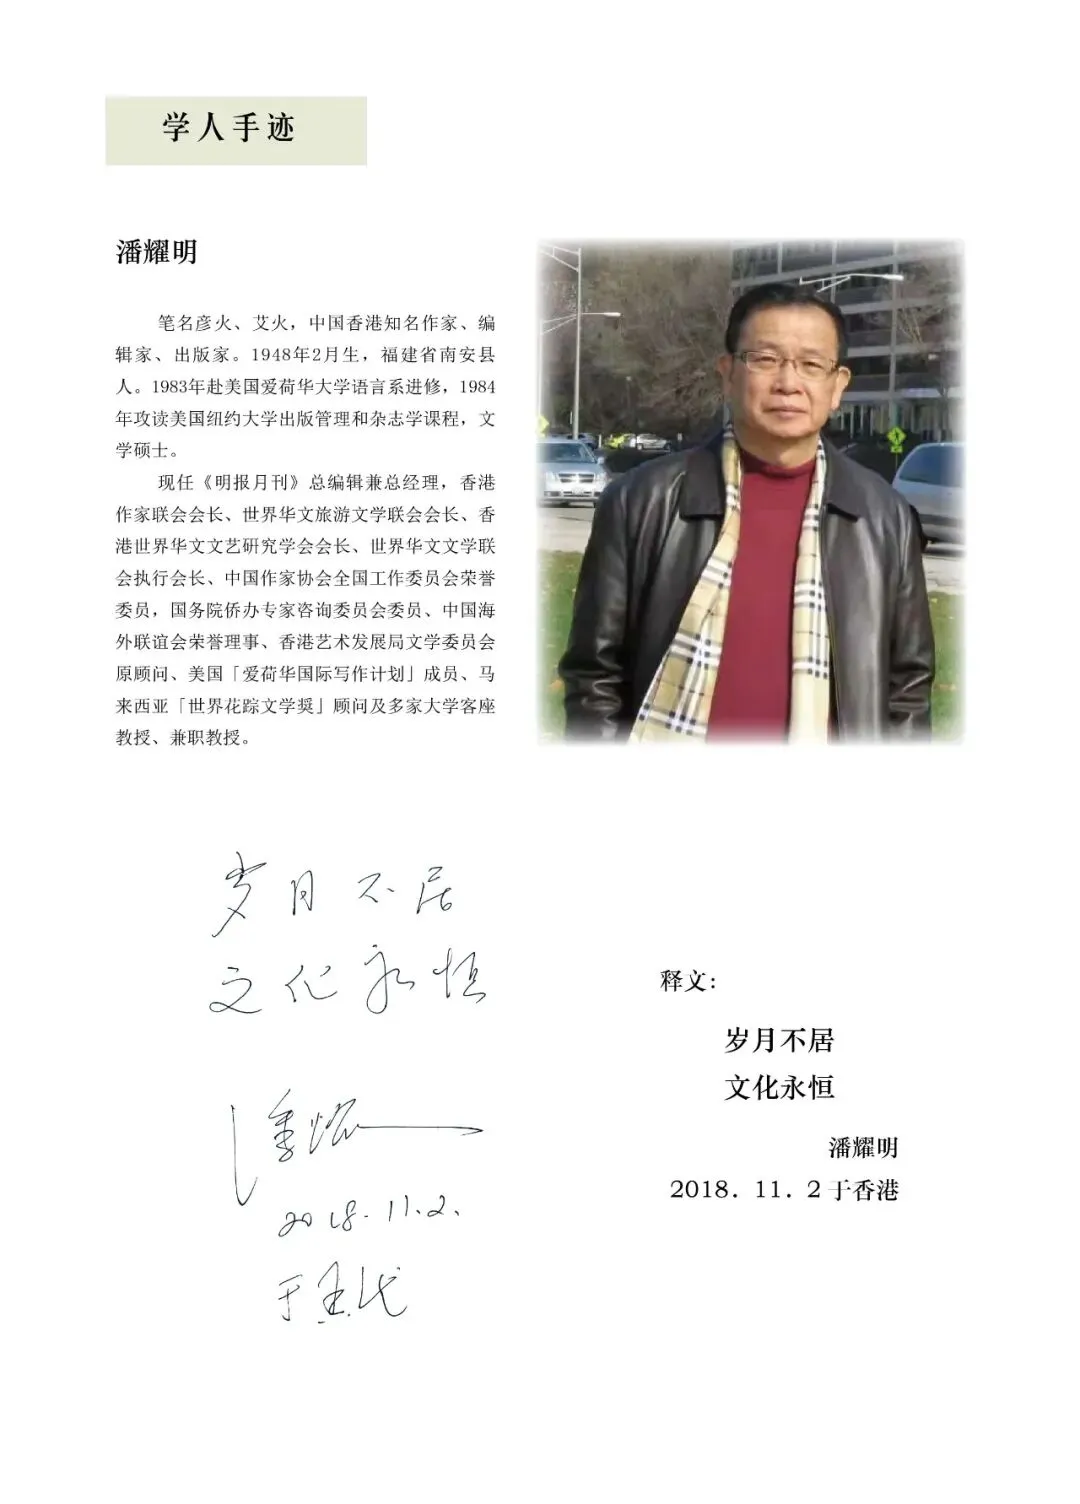 学人手迹
潘耀明
笔名彦火、艾火，中国香港知名作家、编
辑家、出版家。1948年2月生，福建省南安县
人。1983年赴美国爱荷华大学语言系进修，1984
年攻读美国纽约大学出版管理和杂志学课程，文
学硕士。
现任《明报月刊》总编辑兼总经理，香港
作家联会会长、世界华文旅游文学联会会长、香
港世界华文文艺研究学会会长、世界华文文学联
会执行会长、中国作家协会全国工作委员会荣誉
委员，国务院侨办专家咨询委员会委员、中国海
外联谊会荣誉理事、香港艺术发展局文学委员会
原顾问、美国「爱荷华国际写作计划」成员、马
来西亚「世界花踪文学奖」顾问及多家大学客座
教授、兼职教授。
岁月不居
文化永恒
潘耀明
2018.11.2.
于香港
释文：
岁月不居
文化永恒
潘耀明
2018．11．2于香港